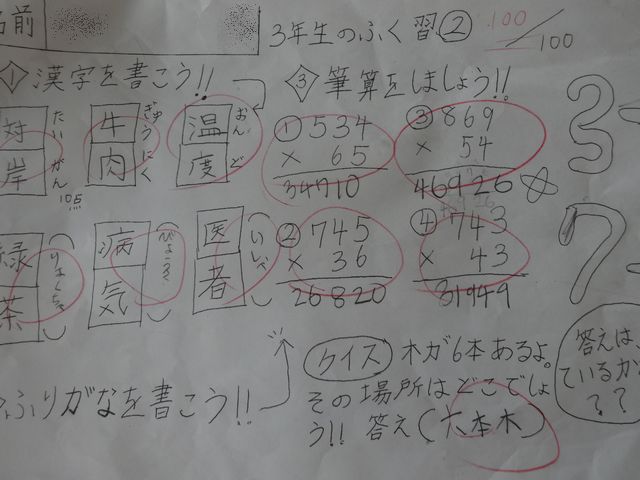 名前
3年生のふく習② 100/100
①漢字を書こう!!
対岸 たいがん
牛肉 ぎゅうにく
温度 おんど
10点
緑茶 りょくちゃ
病気 びょうき
医者 いしゃ
ふりがなを書こう!!
③筆算をしましょう!!
① 534
× 65
34710
③ 869
× 54
46926
② 745
× 36
26820
④ 743
× 43
31949
クイズ 木が6本あるよ。
その場所はどこでしょ
う!! 答え(六本木)
答えは、
ているかな
??
3
7